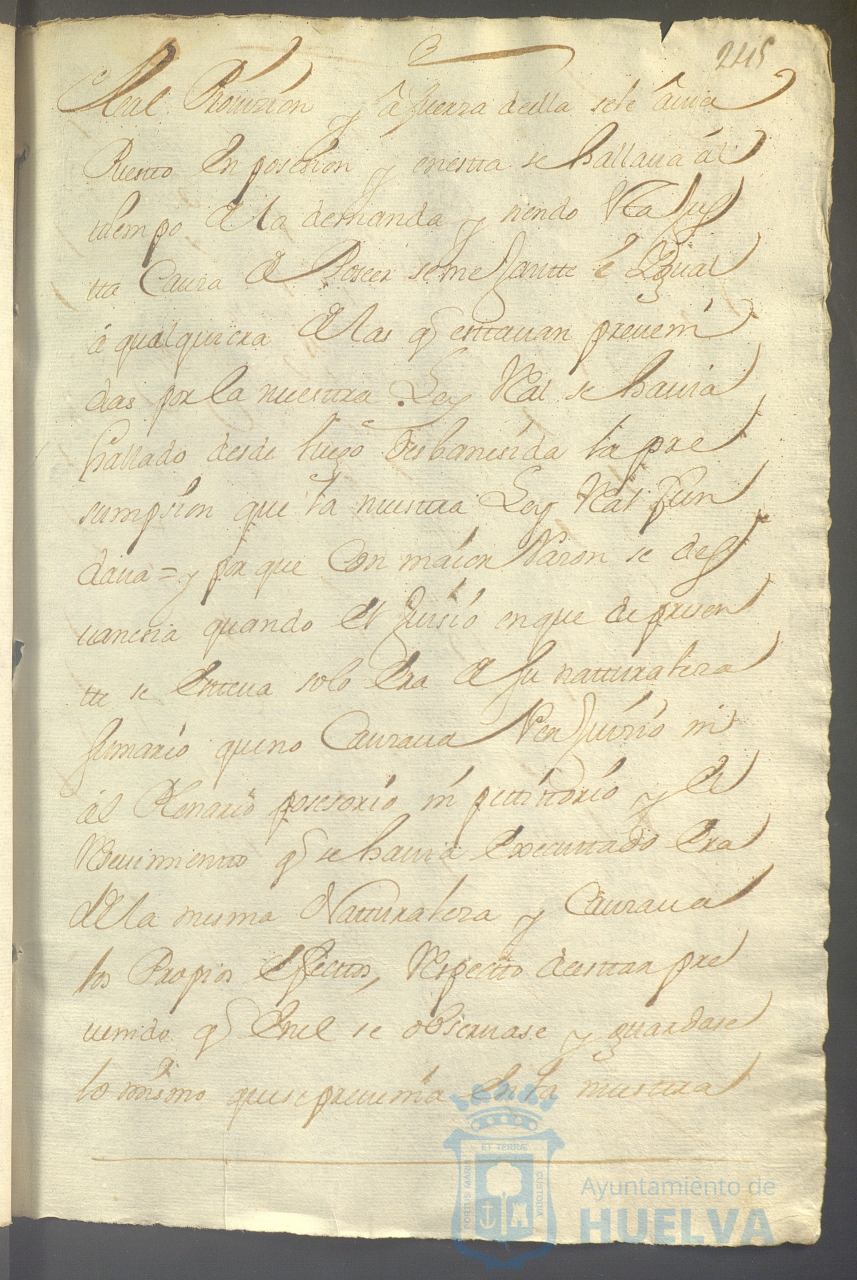 245
Real Provizion y â fuerza della sele âuia
Puesto En posesion y en esta se hallaua ál
tiempo de la demanda y siendo Esta Jus
tta Causa de Poseer semeJantte é Ygual
á qualquiera de las q̃ esttauan preueni
das por la nuesttra Ley Real se hauia
hallado desde luego Desbanesida la pre
sumpsion que la nuesttra Ley Real fun
daua = y por que Con maior Razon se des
uanesia quando el Juisio en que de presen
tte se Esttaua solo Era de Su natturaleza
Sumario que no Causaua Per Juisio ni
ál Plenario posesorio ni petittorio y el
Reseuimientto q̃ se hauia Executtado Era
de la misma Natturaleza y Causaua
los Propios Efectos, Respecto de esttar pre
uenido q̃ En el se obseruase y guardase
lo mismo que se preuenia En la nuesttra
PORTUS MARIS ET TERRÆ CUSTODIA
Ayuntamiento de
HUELVA